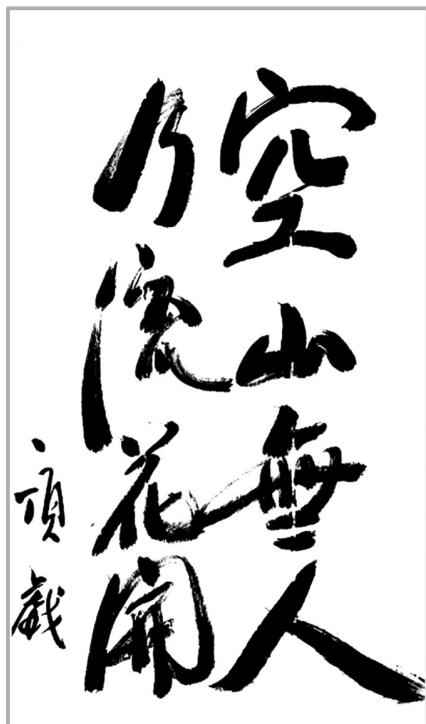 空山無人
水流花開